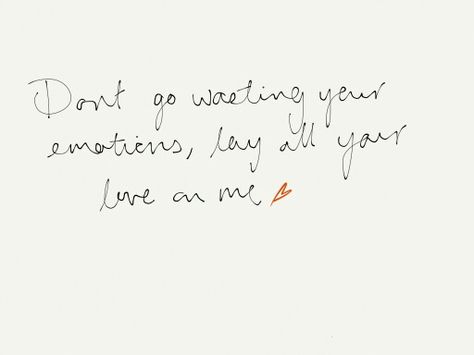 Dont go wasting your
emotions, lay all your
love on me